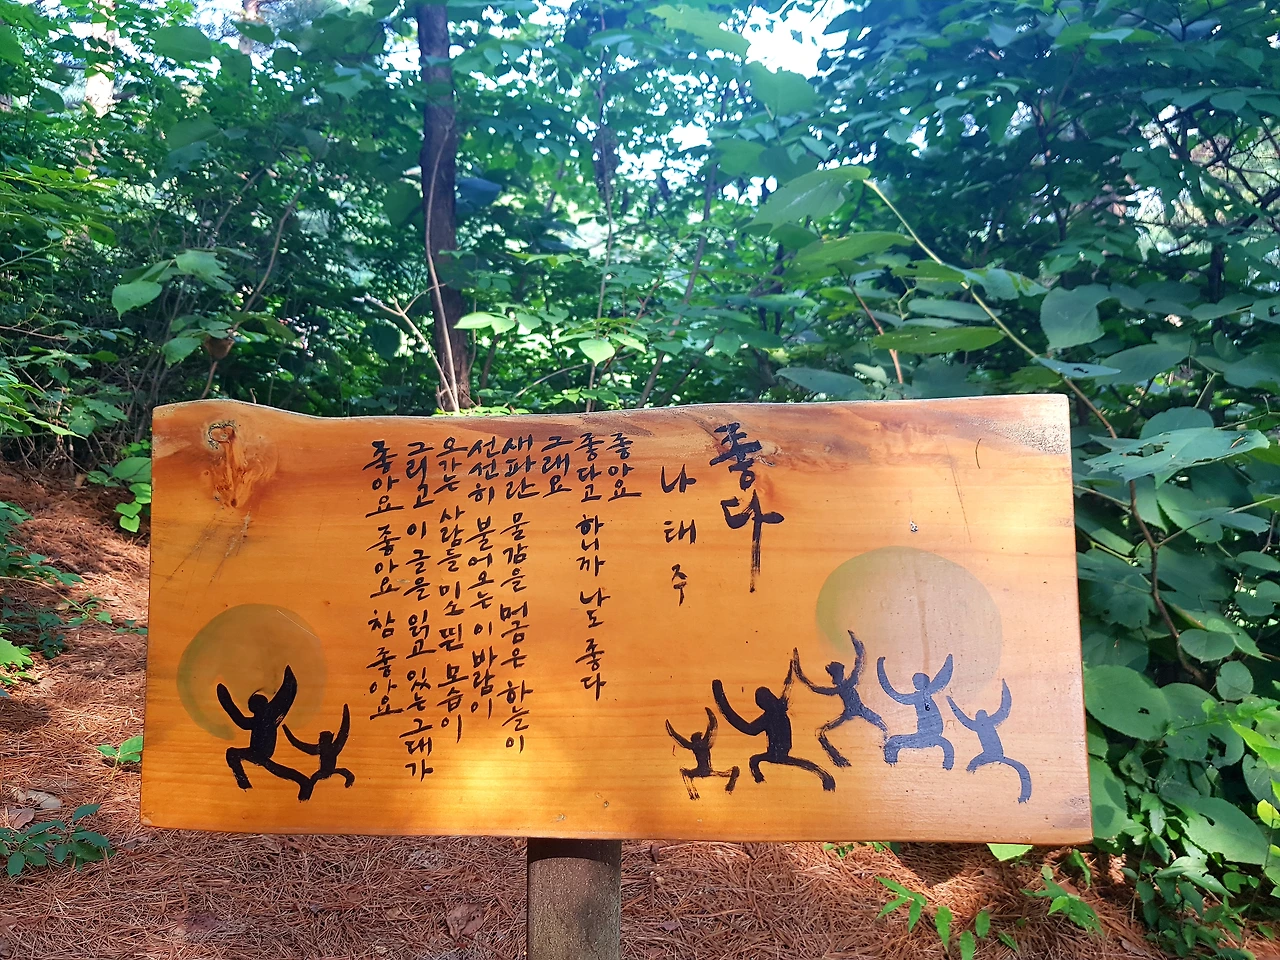 좋다
나태주
좋아요
좋다고 하니까 나도 좋다
그래요
새파란 물감을 머금은 하늘이
선선히 불어오는 이 바람이
오가는 사람들 미소 띈 모습이
그리고 이 글을 읽고 있는 그대가
좋아요 좋아요 참 좋아요